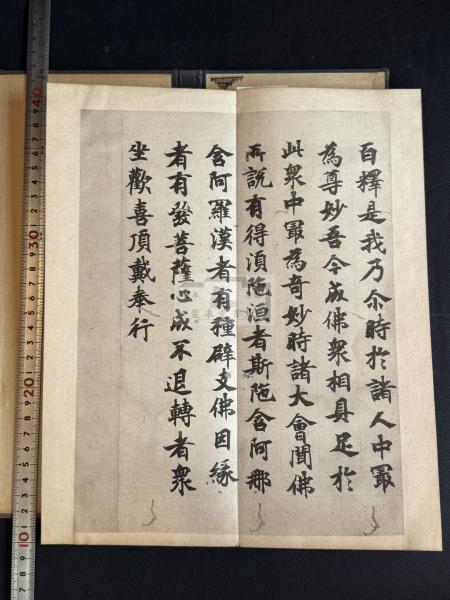 百釋是我乃尒時於諸人中冣
為尊妙吾今成佛衆相具足於
此衆中冣為奇妙時諸大會聞佛
所說有得湏陁洹者斯陁含阿那
含阿羅漢者有種辟支佛因緣
者有發菩薩心成不退轉者衆
坐歡喜頂戴奉行